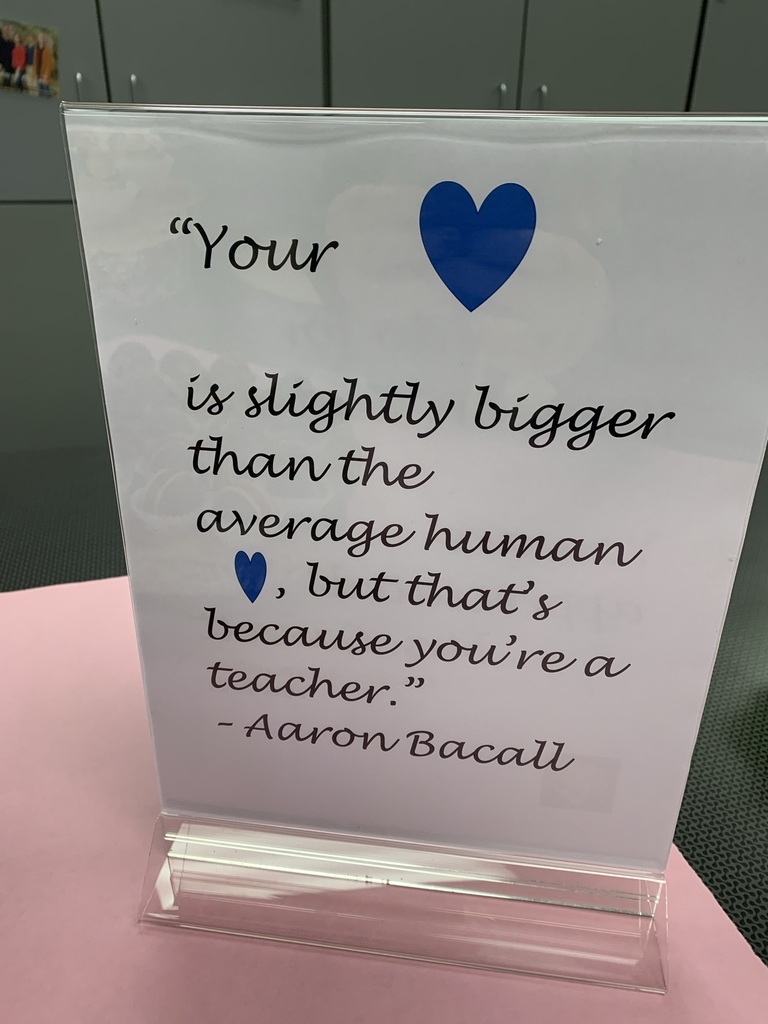 “Your 💙
is slightly bigger
than the
average human
💙, but that’s
because you’re a
teacher.”
- Aaron Bacall